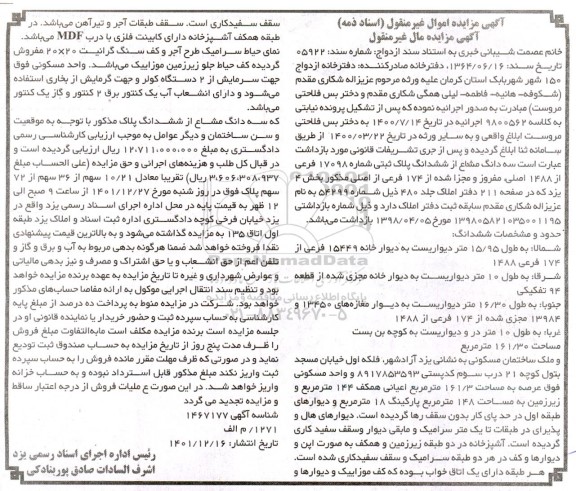 آگهی مزایده اموال غیرمنقول (اسناد ذمه)
آگهی مزایده مال غیرمنقول
خانم عصمت شیبانی خبری به استناد سند ازدواج: شماره سند: ۰۵۹۲۲
تاریخ سند: ۱۳۶۴/۰۶/۱۶، دفترخانه صادرکننده: دفترخانه ازدواج
۱۵۰ شهر شهربابک استان کرمان علیه ورثه مرحوم عزیزاله شکاری مقدم
(شکوفه- هانیه- فاطمه- لیلی همگی شکاری مقدم و دختر بس فلاحتی
مروست) مبادرت به صدور اجرائیه نموده که پس از تشکیل پرونده نیابتی
به کلاسه ۹۸۰۰۵۶۲ اجرائیه در تاریخ ۱۴۰۰/۷/۱۴ به دختر بس فلاحتی
مروست ابلاغ واقعی و به سایر ورثه در تاریخ ۱۴۰۰/۰۳/۲۲ از طریق
سامانه ثنا ابلاغ گردیده و پس از جری تشریفات قانونی مورد بازداشت
عبارت است سه دانگ مشاع از ششدانگ پلاک ثبتی شماره ۱۷۰۹۸ فرعی
از ۱۴۸۸ اصلی، مفروز و مجزا شده از ۱۷۴ فرعی از اصلی مذکور بخش ۲
یزد که در صفحه ۲۱۱ دفتر املاک جلد ۴۸۰ ذیل شماره ۵۴۲۴۹ به نام
عزیزاله شکاری مقدم سابقه ثبت دفتر املاک دارد و ذیل شماره بازداشتی
۱۳۹۸۰۵۸۲۱۰۳۵۰۰۱۱۹۵ مورخ ۱۳۹۸/۰۴/۰۵ بازداشت می‌باشد.
حدود و مشخصات ششدانگ:
شمالا: به طول ۱۵/۹۵ متر دیواریست به دیوار خانه ۱۵۴۴۹ فرعی از
۱۷۴ فرعی ۱۴۸۸
شرقا: به طول ۱۰ متر دیواریست به دیوار خانه مجزی شده از قطعه
۹۴ تفکیکی
جنوبا: به طول ۱۶/۳۰ متر دیواریست به دیوار مغازه‌های ۱۳۴۵۰ و
۱۳۹۸۴ مجزی شده از ۱۷۴ فرعی از ۱۴۸۸
غربا: به طول ۱۰ متر در و دیواریست به کوچه بن بست
مساحت ۱۶۱/۳۰ مترمربع
و ملک ساختمان مسکونی به نشانی یزد آزادشهر، فلکه اول خیابان مسجد
بتول کوچه ۲۱ درب سوم کدپستی ۸۹۱۷۸۵۳۵۹۳ و واحد مسکونی
فوق عرصه به مساحت ۱۶۱/۳ مترمربع اعیانی همکف ۱۴۴ مترمربع و
زیرزمین به مساحت ۱۴۸ مترمربع پارکینگ ۱۸ مترمربع و دیوارهای
طبقه اول در حد پای کار بدون سقف رها گردیده است. دیوارهای هال و
پذیرای در طبقات تا یک متر سرامیک و مابقی دیوار وسقف سفید کاری
گردیده است. آشپزخانه در دو طبقه زیرزمین و همکف به صورت اپن و
دیوارها و کف در هر دو طبقه سرامیک و سقف سفیدکاری شده است.
هر طبقه دارای یک اتاق خواب بوده که کف موزاییک و دیوارها و
سقف سفیدکاری است. سقف طبقات آجر و تیرآهن می‌باشد. در
طبقه همکف آشپزخانه دارای کابینت فلزی با درب MDF می‌باشد.
نمای حیاط سرامیک طرح آجر و کف سنگ گرانیت ۲۰×۲۰ مفروش
گردیده کف حیاط جلو زیرزمین موزاییک می‌باشد. واحد مسکونی فوق
جهت سرمایش از ۲ دستگاه کولر و جهت گرمایش از بخاری استفاده
می‌شود و دارای انشعاب آب یک کنتور برق ۲ کنتور و گاز یک کنتور
می‌باشد.
که سه دانگ مشاع از ششدانگ پلاک مذکور با توجه به موقعیت
و سن ساختمان و دیگر عوامل به موجب ارزیابی کارشناسی رسمی
دادگستری به مبلغ ۱۲،۷۱۱،۰۰۰،۰۰۰ ریال ارزیابی گردیده است و
در قبال کل طلب و هزینه‌های اجرائی و حق مزایده (علی الحساب مبلغ
۳،۶۰۶،۳۰۸،۹۳۷ ریال) تقریبا معادل ۱۰/۲۱ سهم از ۳۶ سهم از ۷۲
سهم پلاک فوق در روز شنبه مورخ ۱۴۰۱/۱۲/۲۷ از ساعت ۹ صبح الی
۱۲ ظهر به قیمت پایه در محل اداره اجرای اسناد رسمی یزد واقع در
یزد خیابان فرخی کوچه دادگستری اداره ثبت اسناد و املاک یزد طبقه
اول اتاق ۱۳۵ به مزایده گذاشته می‌شود و به بالاترین قیمت پیشنهادی
نقدا فروخته خواهد شد ضمنا هرگونه بدهی مربوط به آب و برق و گاز و
تلفن اعم از حق انشعاب و یا حق اشتراک و مصرف و نیز بدهی مالیاتی
و عوارض شهرداری و غیره تا تاریخ مزایده به عهده برنده مزایده خواهد
بود و تنظیم سند انتقال اجرایی موکول به ارائه مفاصا حساب‌های مذکور
خواهد بود. شرکت در مزایده منوط به پرداخت ده درصد از مبلغ پایه
کارشناسی به حساب سپرده ثبت و حضور خریدار یا نماینده قانونی او در
جلسه مزایده است برنده مزایده مکلف است مابه‌التفاوت مبلغ فروش
را ظرف مدت پنج روز از تاریخ مزایده به حساب صندوق ثبت تودیع
نماید و در صورتی که ظرف مهلت مقرر مانده فروش را به حساب سپرده
ثبت واریز نکند مبلغ مذکور قابل استرداد نبوده و به حساب خزانه
واریز خواهد شد. در این صورت عملیات فروش از درجه اعتبار ساقط
و مزایده تجدید می گردد
شناسه آگهی ۱۴۶۷۱۷۷
۱۲۷۱/ م الف
تاریخ انتشار: ۱۴۰۱/۱۲/۱۶
رئیس اداره اجرای اسناد رسمی یزد
اشرف السادات صادق پوربنادکی